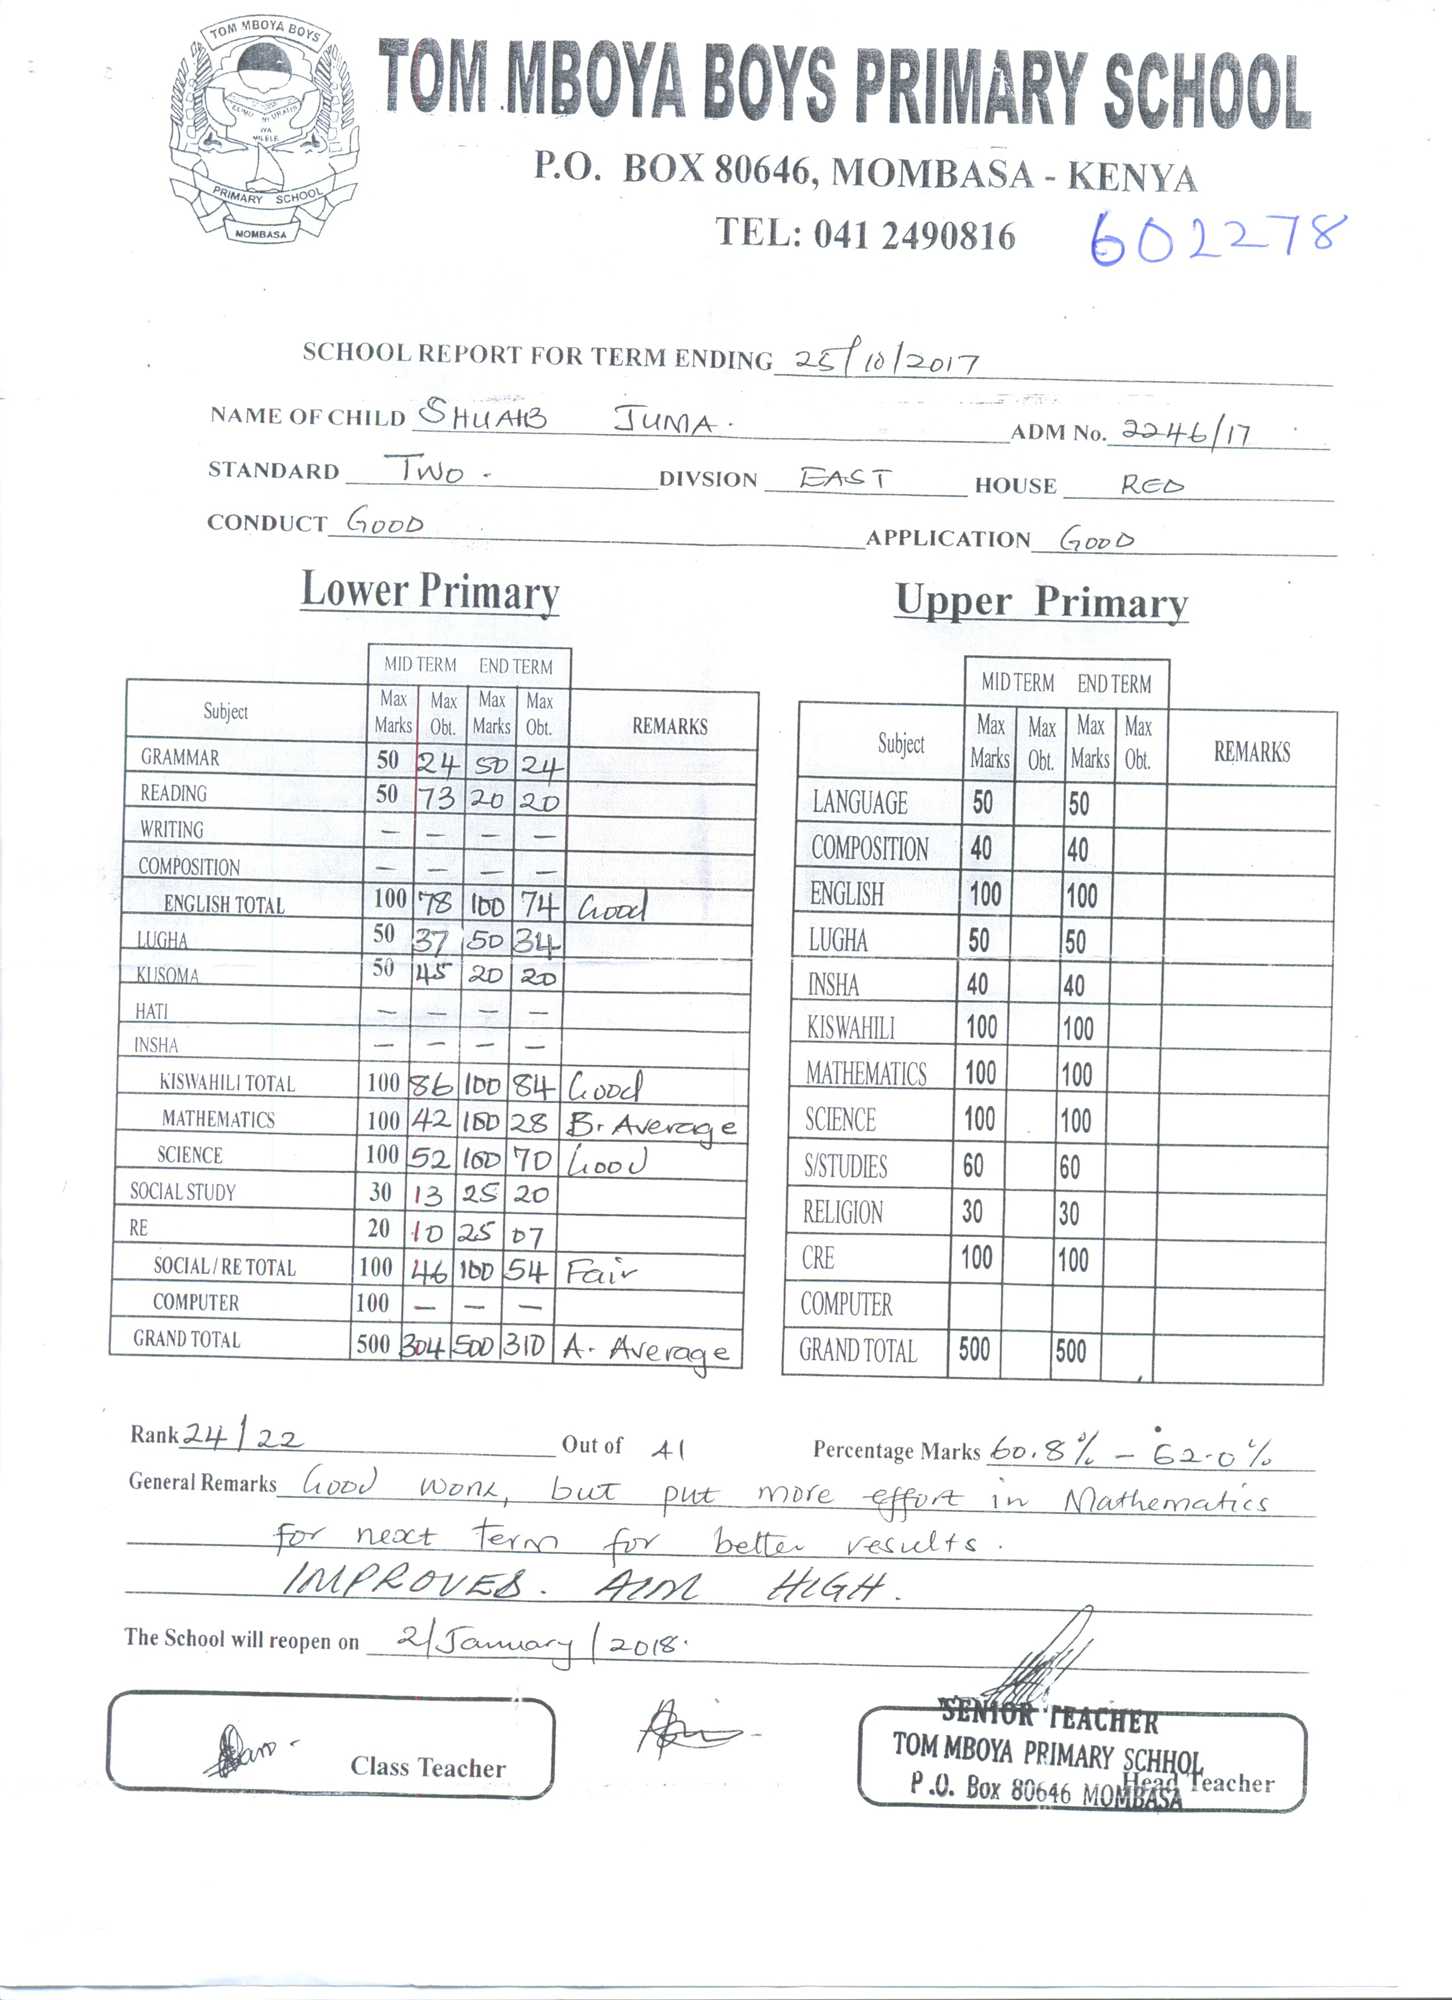 TOM MBOYA BOYS
ELIMU NI UKARAS
IYA
MILELE
PRIMARY SCHOOL
MOMBASA
TOM MBOYA BOYS PRIMARY SCHOOL
P.O. BOX 80646, MOMBASA - KENYA
TEL: 041 2490816 602278
SCHOOL REPORT FOR TERM ENDING 25/10/2017
NAME OF CHILD SHUAIB JUMA. ADM No. 2246/17
STANDARD TWO - DIVSION EAST HOUSE RED
CONDUCT GOOD APPLICATION GOOD
Lower Primary
MID TERM END TERM
Subject Max Marks Max Obt. Max Marks Max Obt. REMARKS
GRAMMAR 50 24 50 24
READING 50 73 20 20
WRITING — — — —
COMPOSITION — — — —
ENGLISH TOTAL 100 78 100 74 Good
LUGHA 50 37 50 34
KUSOMA 50 45 20 20
HATI — — — —
INSHA — — — —
KISWAHILI TOTAL 100 86 100 84 Good
MATHEMATICS 100 42 100 28 B. Average
SCIENCE 100 52 100 70 Good
SOCIAL STUDY 30 13 25 20
RE 20 10 25 07
SOCIAL / RE TOTAL 100 46 100 54 Fair
COMPUTER 100 — — —
GRAND TOTAL 500 304 500 310 A. Average
Upper Primary
MID TERM END TERM
Subject Max Marks Max Obt. Max Marks Max Obt. REMARKS
LANGUAGE 50 50
COMPOSITION 40 40
ENGLISH 100 100
LUGHA 50 50
INSHA 40 40
KISWAHILI 100 100
MATHEMATICS 100 100
SCIENCE 100 100
S/STUDIES 60 60
RELIGION 30 30
CRE 100 100
COMPUTER
GRAND TOTAL 500 500
Rank 24/22 Out of 41 Percentage Marks 60.8% - 62.0%
General Remarks Good work, but put more effort in Mathematics
for next term for better results.
IMPROVES. AIM HIGH.
The School will reopen on 2/January/2018.
Class Teacher
SENIOR TEACHER
TOM MBOYA PRIMARY SCHHOL
Head Teacher
P.O. Box 80646 MOMBASA